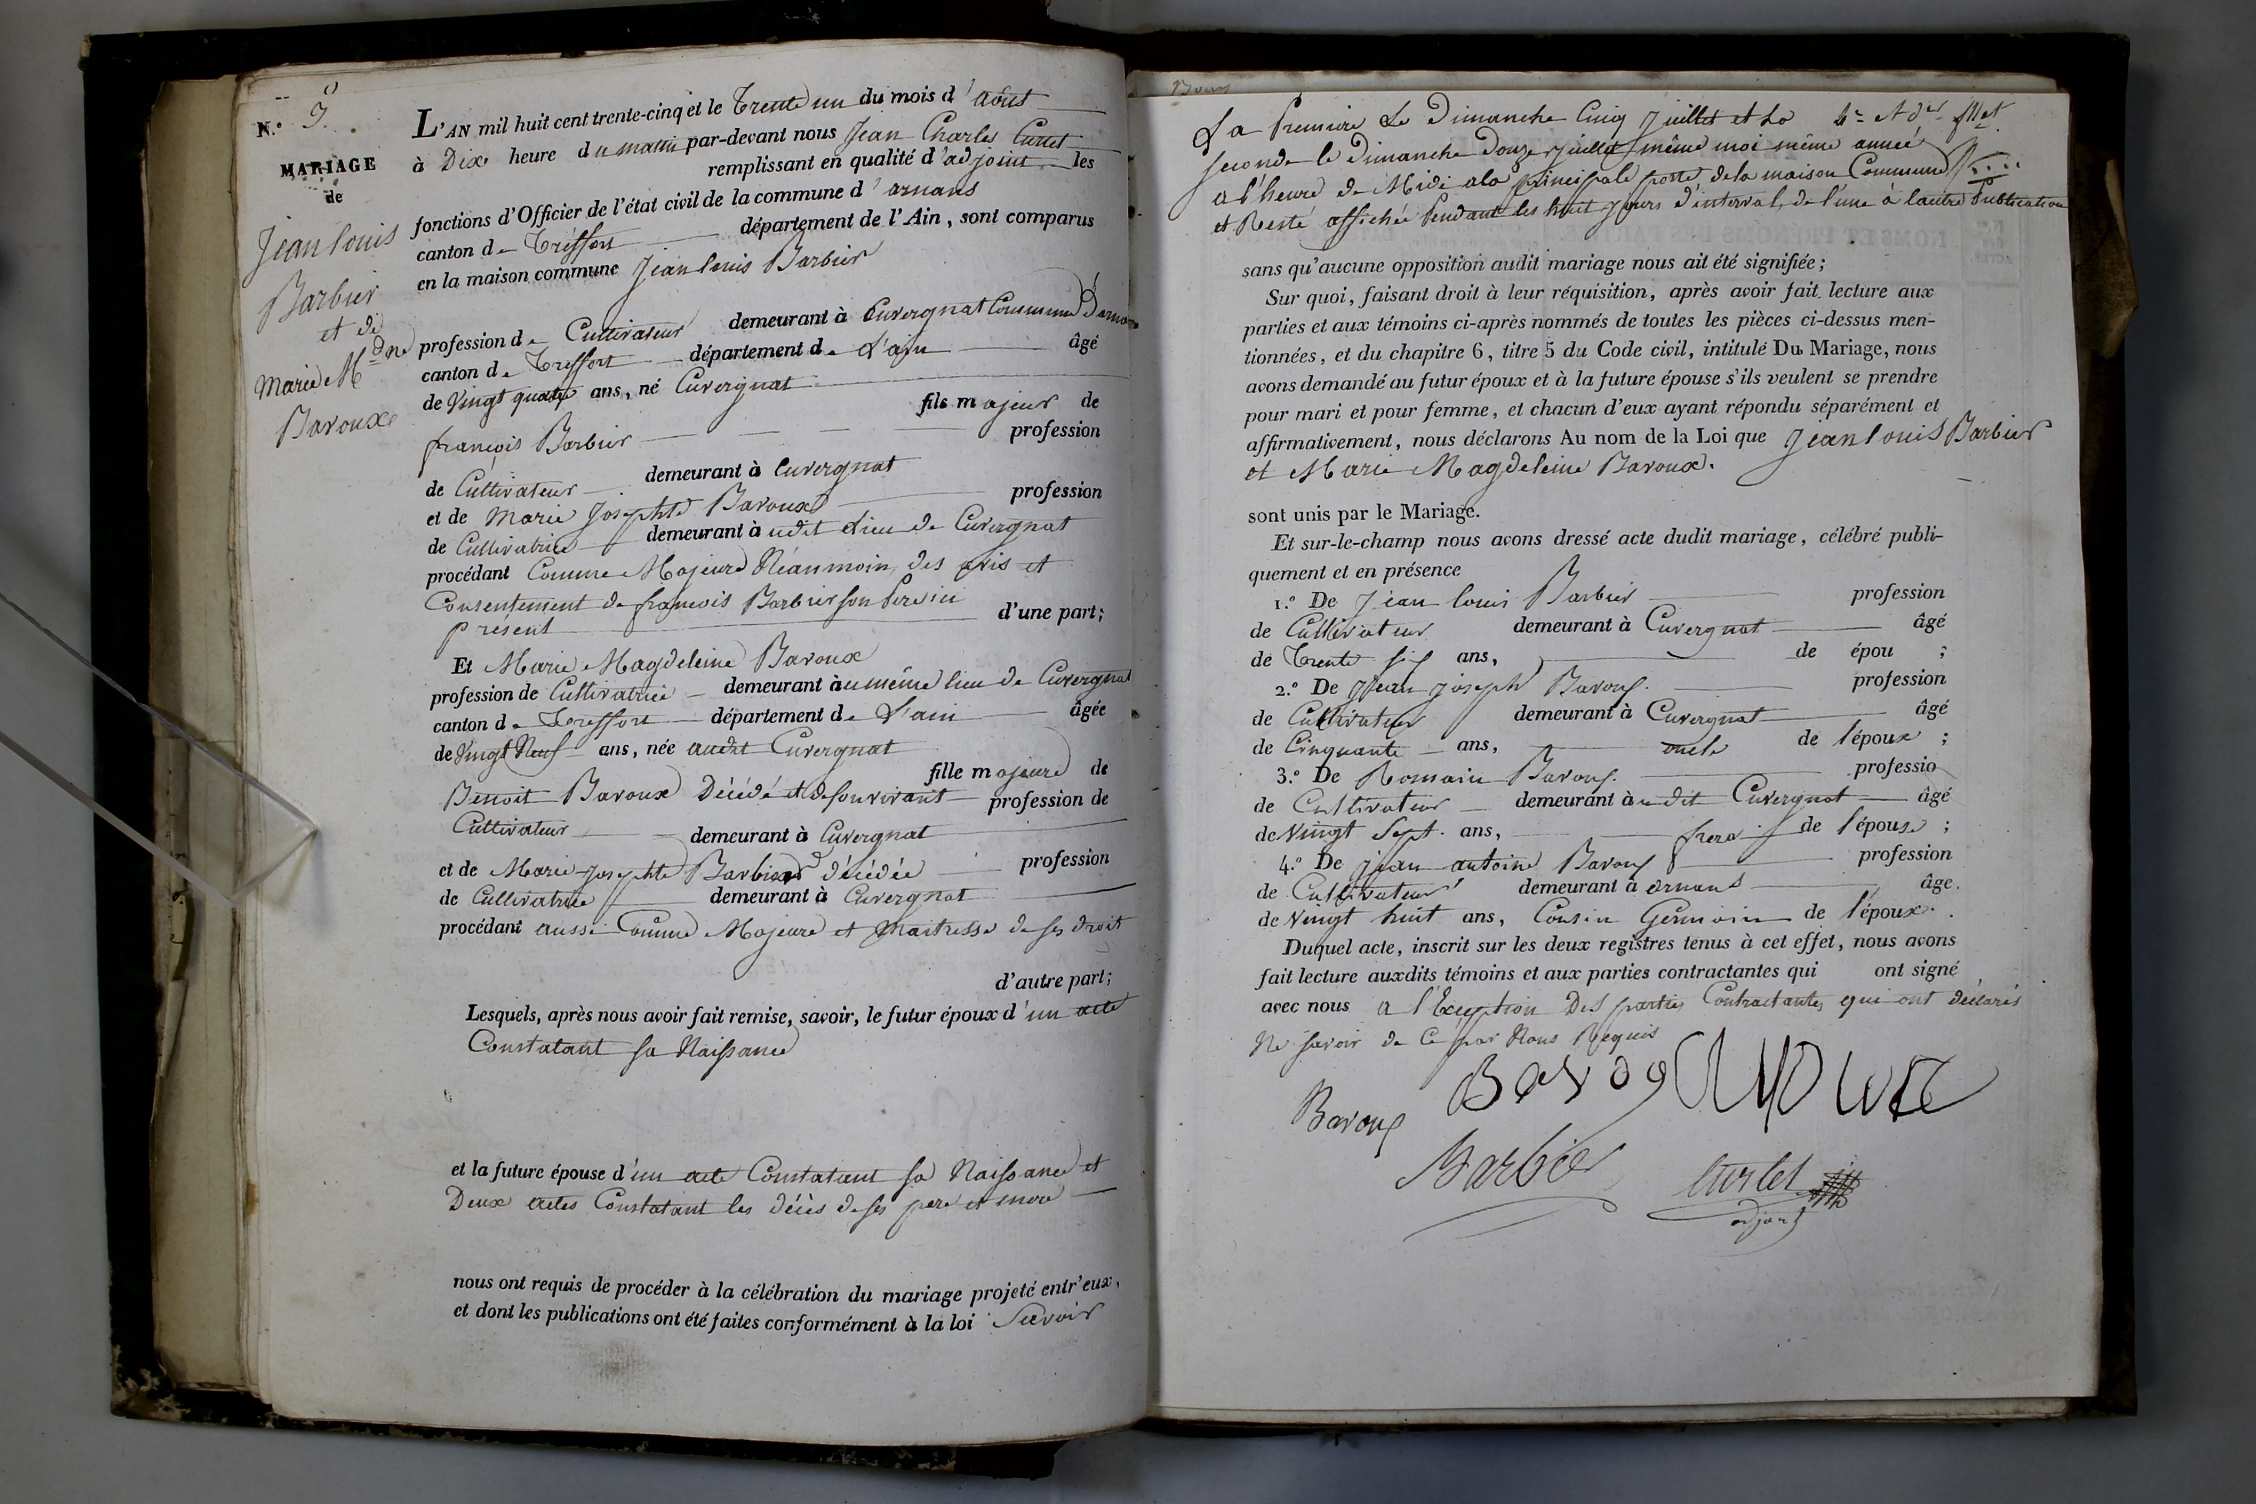 N.º 3.
MARIAGE
de
Jean louis
Barbier
et de
Marie Mdne
Baroux
L'AN mil huit cent trente-cinq et le Trente un du mois d'août
à Dix heure du matin par-devant nous Jean Charles Curlet
remplissant en qualité d'adjoint les
fonctions d'Officier de l'état civil de la commune d'arnans
canton de Treffort département de l'Ain, sont comparus
en la maison commune Jean louis Barbier
profession de Cultivateur demeurant à Cuvergnat Commune D'arnans
canton de Treffort département de L'ain âgé
de Vingt quatre ans, né Cuvergnat
fils majeur de
françois Barbier profession
de Cultivateur demeurant à Cuvergnat
et de Marie Josephte Baroux profession
de Cultivatrice demeurant à udit Lieu de Cuvergnat
procédant Comme Majeure Néanmoin des avis et
Consentement de françois Barbier son Pere ici
présent d'une part;
Et Marie Magdeleine Baroux
profession de Cultivatrice demeurant àu même lieu de Cuvergnat
canton de Treffort département de L'ain âgée
de Vingt Neuf ans, née audit Cuvergnat
fille majeure de
Benoit Baroux Décédé et de son vivant profession de
Cultivateur demeurant à Cuvergnat
et de Marie Josephte Barbier décédée profession
de Cultivatrice demeurant à Cuvergnat
procédant aussi Comme Majeure et Maitresse de ses droit
d'autre part;
Lesquels, après nous avoir fait remise, savoir, le futur époux d'un acte
Constatant sa Naissance
et la future épouse d'un acte Constatant sa Naissance et
Deux actes Constatant les décès de ses pere et mere
nous ont requis de procéder à la célébration du mariage projeté entr'eux,
et dont les publications ont été faites conformément à la loi Savoir
La Premiere Le Dimanche Cinq Juillet et La
seconde le Dimanche Douze juillet même moi même année
a l'heure de Midi a la principale porte de la maison Commune
et Resté affichée Pendant les huit jours d'interval de l'une à lautre Publication
sans qu'aucune opposition audit mariage nous ait été signifiée;
Sur quoi, faisant droit à leur réquisition, après avoir fait lecture aux
parties et aux témoins ci-après nommés de toutes les pièces ci-dessus men-
tionnées, et du chapitre 6, titre 5 du Code civil, intitulé Du Mariage, nous
avons demandé au futur époux et à la future épouse s'ils veulent se prendre
pour mari et pour femme, et chacun d'eux ayant répondu séparément et
affirmativement, nous déclarons Au nom de la Loi que Jean louis Barbier
et Marie Magdeleine Baroux.
sont unis par le Mariage.
Et sur-le-champ nous avons dressé acte dudit mariage, célébré publi-
quement et en présence
1.º De Jean louis Barbier profession
de Cultivateur demeurant à Cuvergnat âgé
de Trente six ans, de épou ;
2.º De Jean Joseph Baroux profession
de Cultivateur demeurant à Cuvergnat âgé
de Cinquante ans, oncle de l'époux ;
3.º De Romain Baroux professio
de Cultivateur demeurant àudit Cuvergnat âgé
de Vingt Sept. ans, frere de l'épouse ;
4.º De jean antoine Baroux profession
de Cultivateur demeurant à arnans âgé.
de Vingt huit ans, Cousin Germain de l'époux.
Duquel acte, inscrit sur les deux registres tenus à cet effet, nous avons
fait lecture auxdits témoins et aux parties contractantes qui ont signé
avec nous a l'Exception Des parties Contractantes qui ont déclarés
Ne savoir de Ce par Nous Requis
Baroux
Barbier
Curlet
adjoint